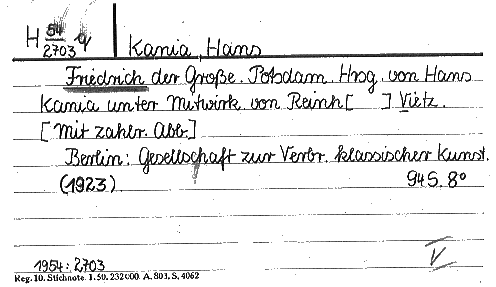 H 54/2703 q
Kania, Hans
Friedrich der Große. Potsdam. Hrsg. von Hans
Kania unter Mitwirk. von Reinh[ ] Vietz.
[Mit zahlr. Abb.]
Berlin: Gesellschaft zur Verbr. klassischer Kunst.
(1923) 94 S. 8°
1954: 2703
V
Reg. 10. Stichnote. 1. 50. 232000. A. 803. S. 4062